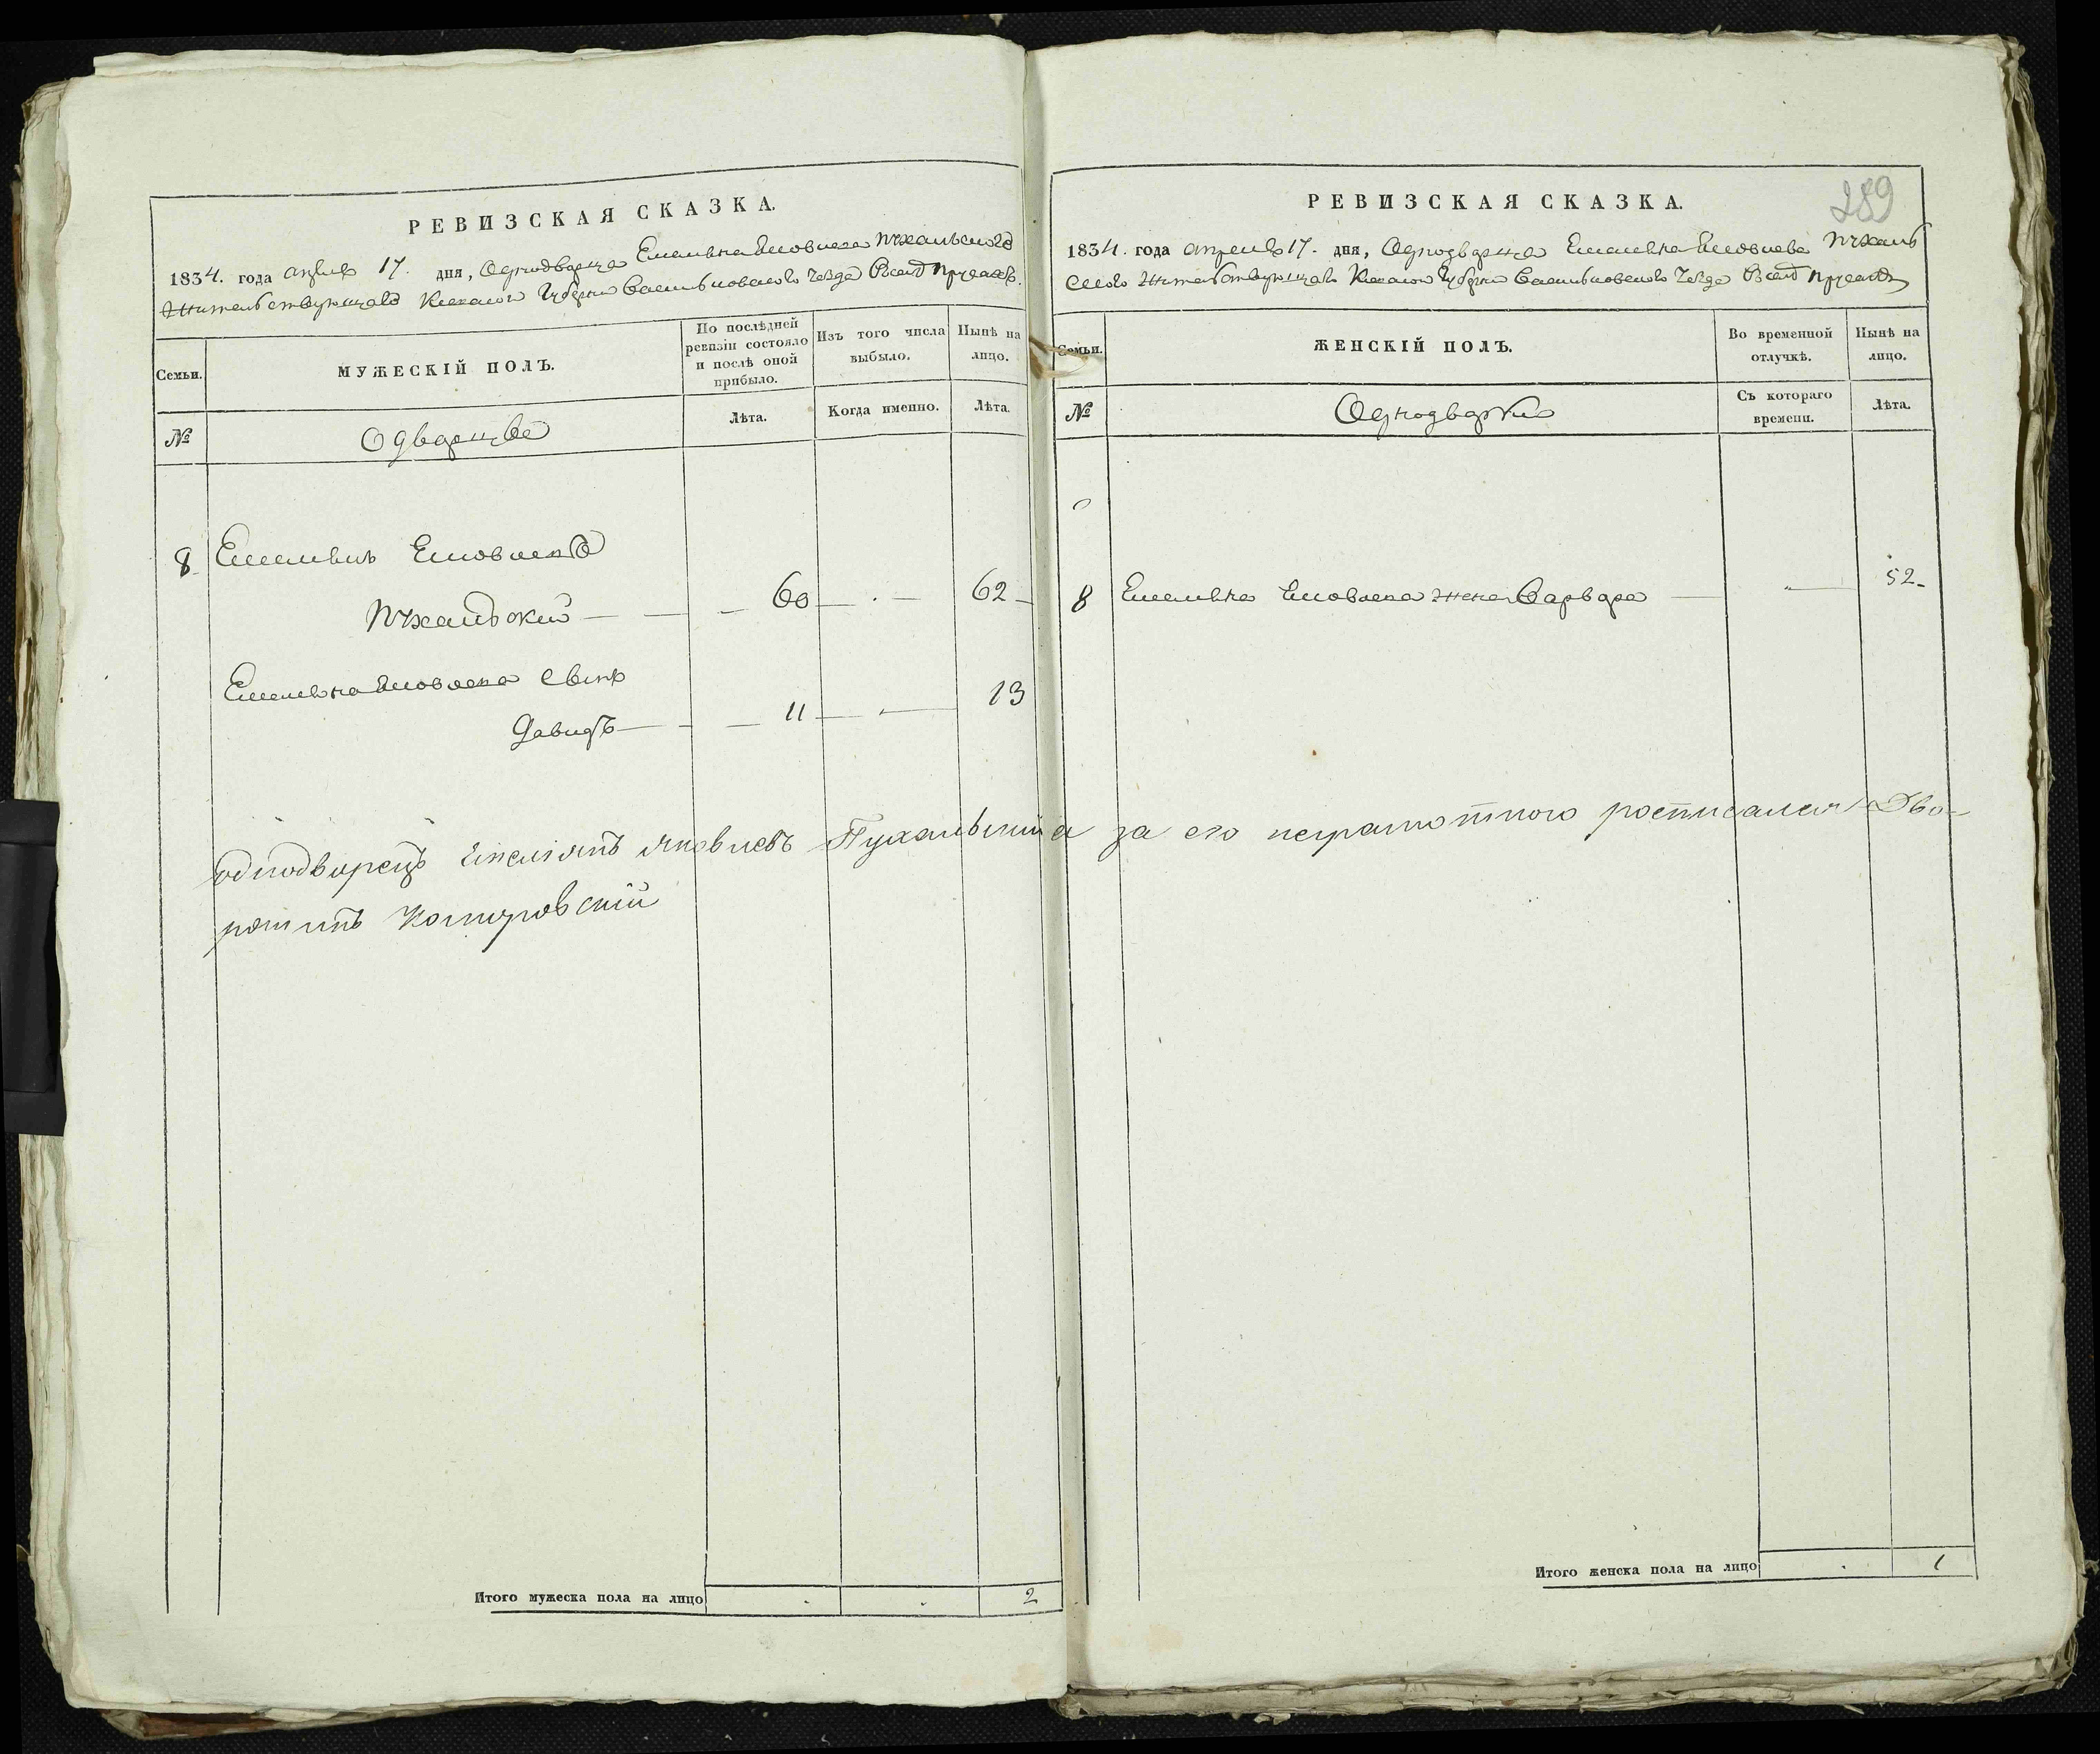 РЕВИЗСКАЯ СКАЗКА.
1834. года апреля 17. дня, Однодворца Емельяна Яковлева Пухальского
жительствующаго Киевской Губернии Васильковского уезда Вселе Прусахъ.
Семьи.
МУЖЕСКІЙ ПОЛЪ.
По послѣдней ревизіи состояло и послѣ оной прибыло.
Изъ того числа выбыло.
Нынѣ на лицо.
№
Лѣта.
Когда именно.
Лѣта.
8 Емельянъ Яковлевъ
Пухальский 60 62
Емельяна Яковлева сынъ
Давидъ 11 13
однодворецъ Емелiянъ Яковлевъ Пухальский а за его неграмотного росписался Дво-
рянинъ
Итого мужеска пола на лицо 2
РЕВИЗСКАЯ СКАЗКА.
289
1834. года апреля 17. дня, Однодворца Емельяна Яковлева Пухаль
ского жительствующаго Киевской Губернии Васильковского уезда Вселе Прусахъ
Семьи.
ЖЕНСКІЙ ПОЛЪ.
Во временной отлучкѣ.
Нынѣ на лицо.
№
Однодворки
Съ котораго времени.
Лѣта.
8 Емельяна Яковлева жена Варвара 52
Итого женска пола на лицо 1